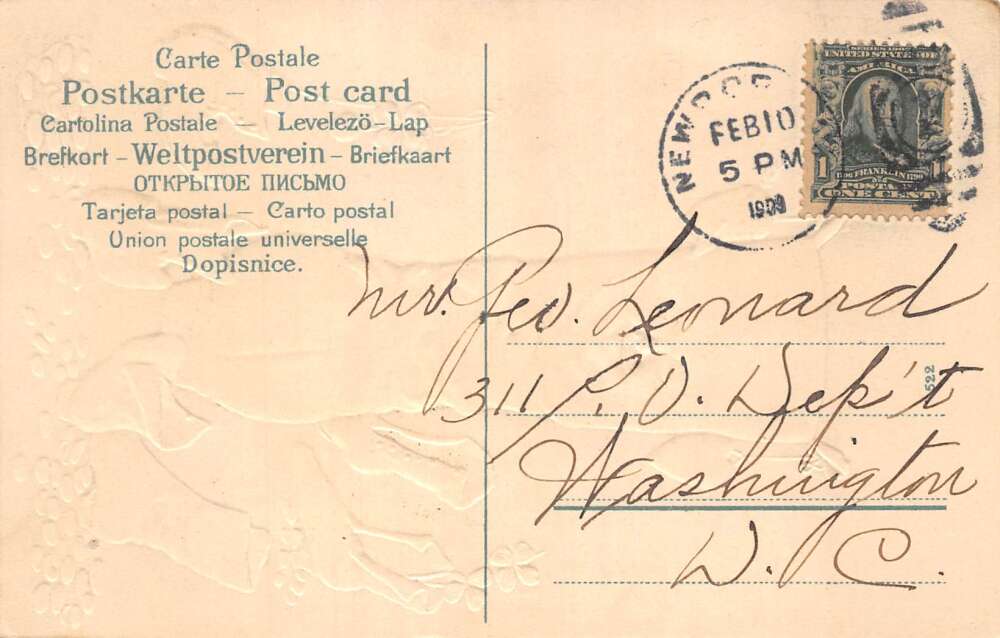 Carte Postale
Postkarte – Post card
Cartolina Postale — Levelező-Lap
Brefkort – Weltpostverein – Briefkaart
ОТКРЫТОЕ ПИСЬМО
Tarjeta postal — Carto postal
Union postale universelle
Dopisnice.
FEB 10
5 PM
UNITED STATES OF
AMERICA
1
FRANKLIN
POSTAGE
ONE CENT
Mr. Geo. Leonard
311 P. O. Dep't
Washington
D. C.
522